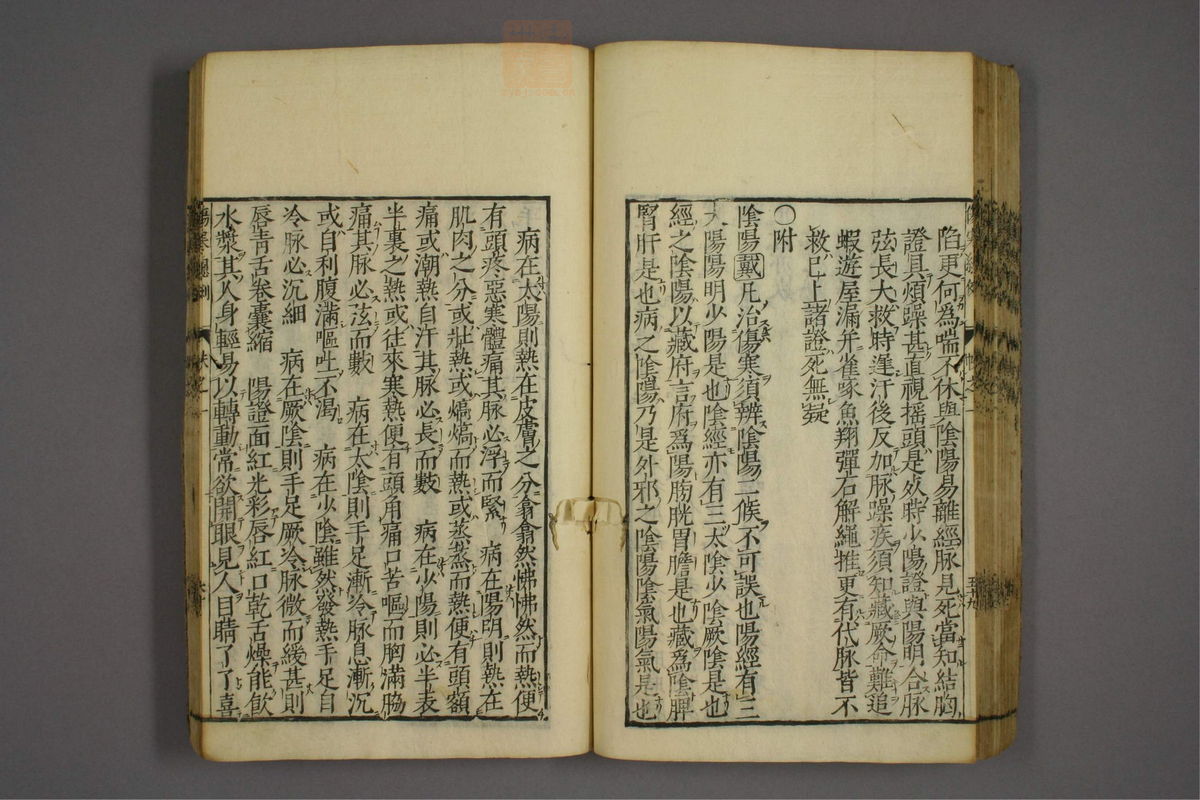 陷更何為喘不休與陰陽易離經脉見死當知結胸
證具煩躁甚直視揺頭是久時少陽證與陽明合脉
弦長大救時逢汗後反加脉躁疾須知藏厥命難追
蝦遊屋漏并雀啄魚翔彈石解繩推更有代脉皆不
救已上諸證死無疑
○附
陰陽戴凡治傷寒須辨陰陽二候不可誤也陽經有三
太陽陽明少陽是也陰經亦有三太陰少陰厥陰是也
經之陰陽以藏府言府爲陽膀胱胃膽是也藏爲陰脾
腎肝是也病之陰陽乃是外邪之陰陽陰氣陽氣是也
病在太陽則熱在皮膚之分翕翕然怫怫然而熱便
有頭疼惡寒體痛其脉必浮而緊　病在陽明則熱在
肌肉之分或壯熱或熇熇而熱或蒸蒸而熱便有頭額
痛或潮熱自汗其脉必長而數　病在少陽則必半表
半裏之熱或往來寒熱便有頭角痛口苦嘔而胸滿脇
痛其脉必弦而數　病在太陰則手足漸冷脉息漸沉
或自利腹滿嘔吐不渴　病在少陰雖然發熱手足自
冷脉必沉細　病在厥陰則手足厥冷脉微而緩甚則
唇青舌卷囊縮　陽證面紅光彩唇紅口乾舌燥能飲
水漿其人身輕易以轉動常欲開眼見人目睛了了喜